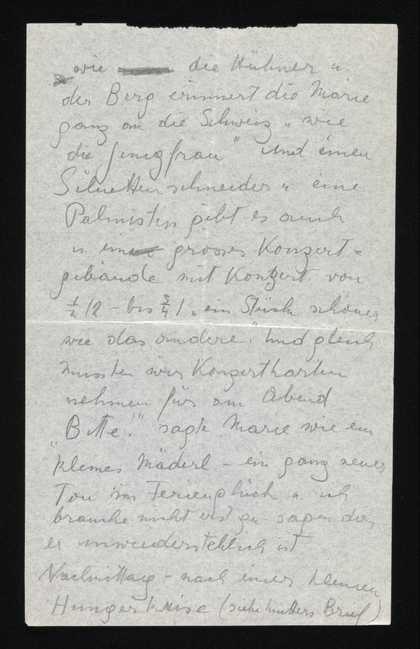 wie die Hühner u
der Berg erinnert die Marie
ganz an die Schweiz „wie
die Jungfrau" Und einen
Siluettenschneider u eine
Palmistin gibt es auch
u ein grosses Konzert-
gebäude mit Konzert von
½/2 - bis ¾/1 „ein Stück schöner
wie das andere." Und gleich
mussten wir Konzertkarten
nehmen für am Abend
"Bitte!" sagte Marie wie ein
kleines Mäderl - ein ganz neuer
Ton im Ferienglück u ich
brauche nicht erst zu sagen dass
er unwiderstehlich ist
Nachmittag - nach einer kleinen
Hungerkrise (siehe Mutters Brief)